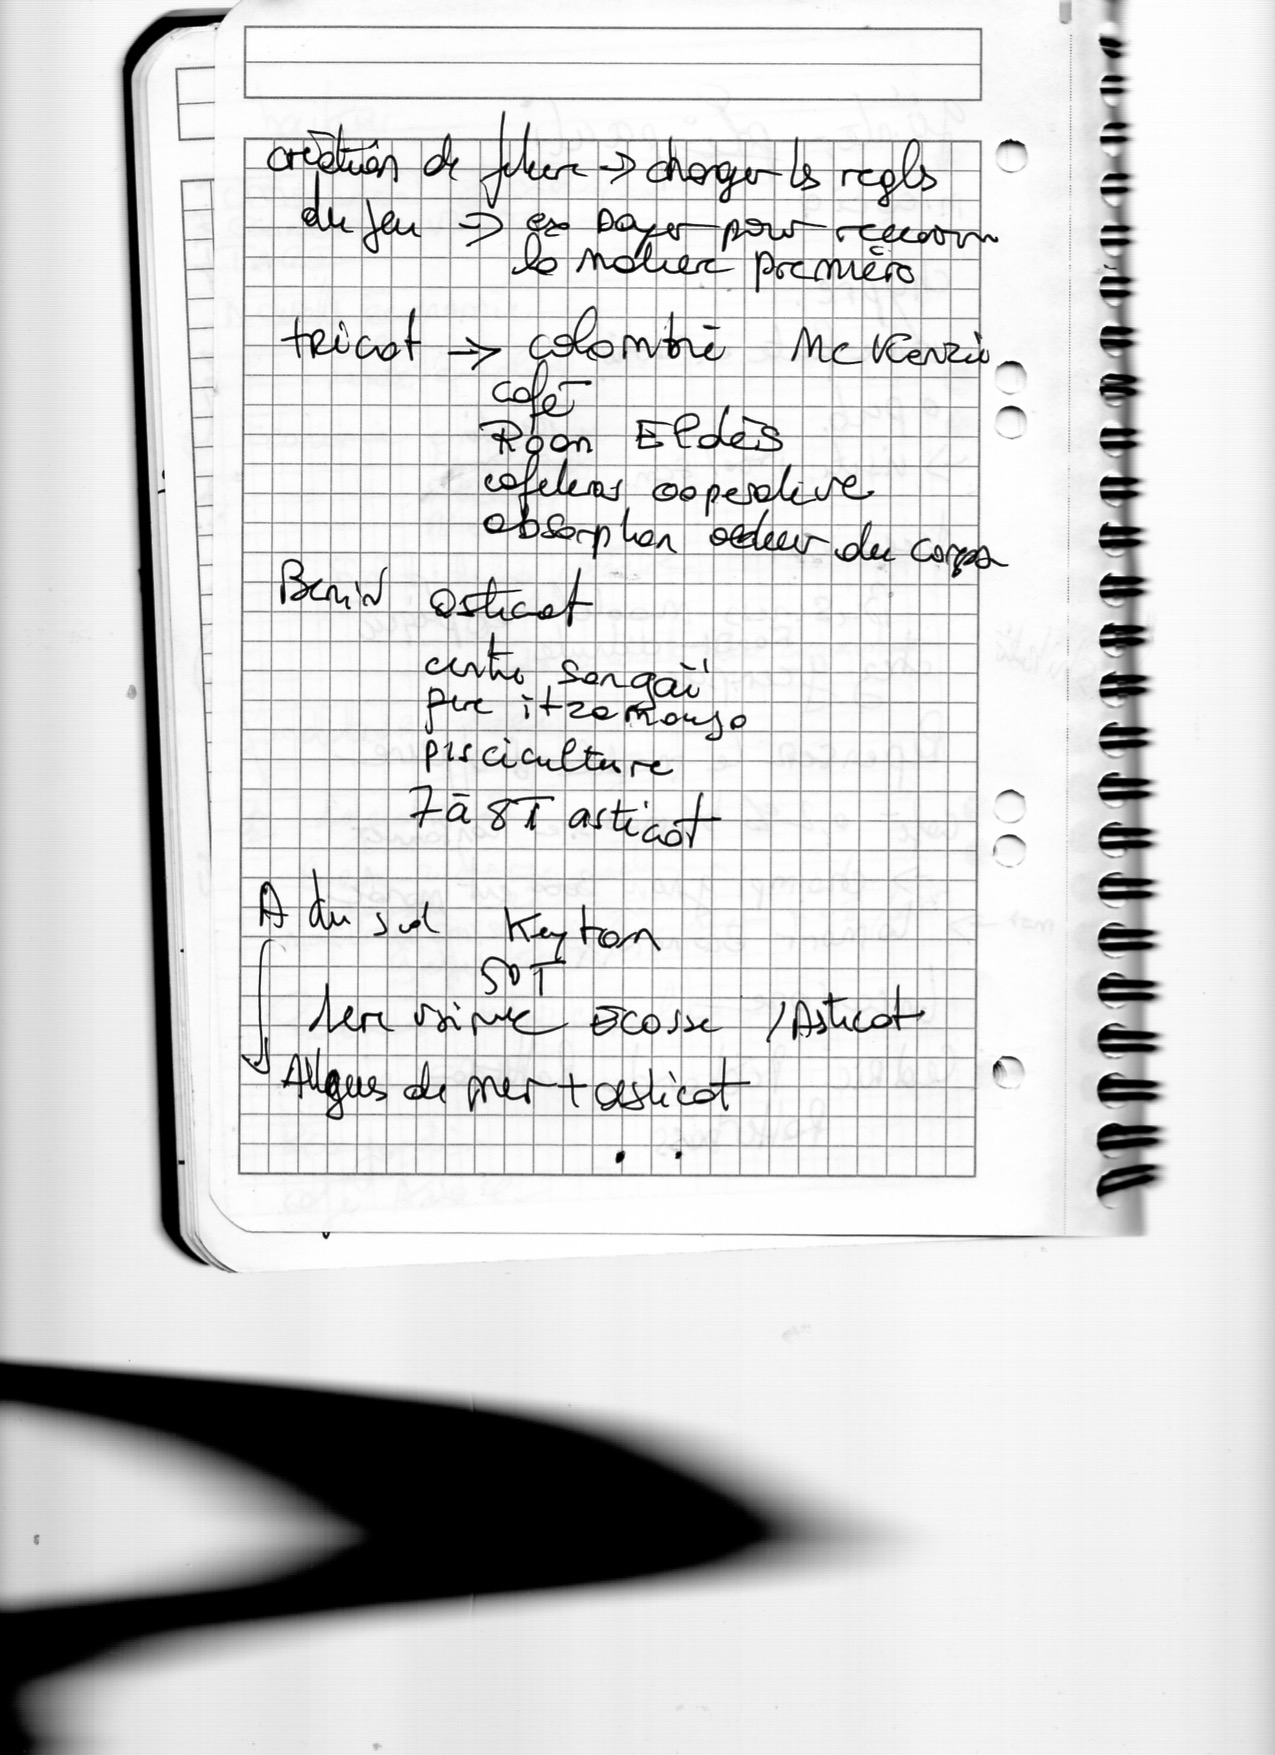 création de filière → changer les regls
du jeu → ex payer pour recevoir
la matière première
tricot → colombie McKenzie
café
Roan
cafeteras coopérative
absorption odeur du corps
Benin asticot
centre songaï
pere itzamouyo
pisciculture
7 à 8T asticot
A du sud Keyton
50T
1ere usine Ecosse / Asticot
Algues de mer + asticot